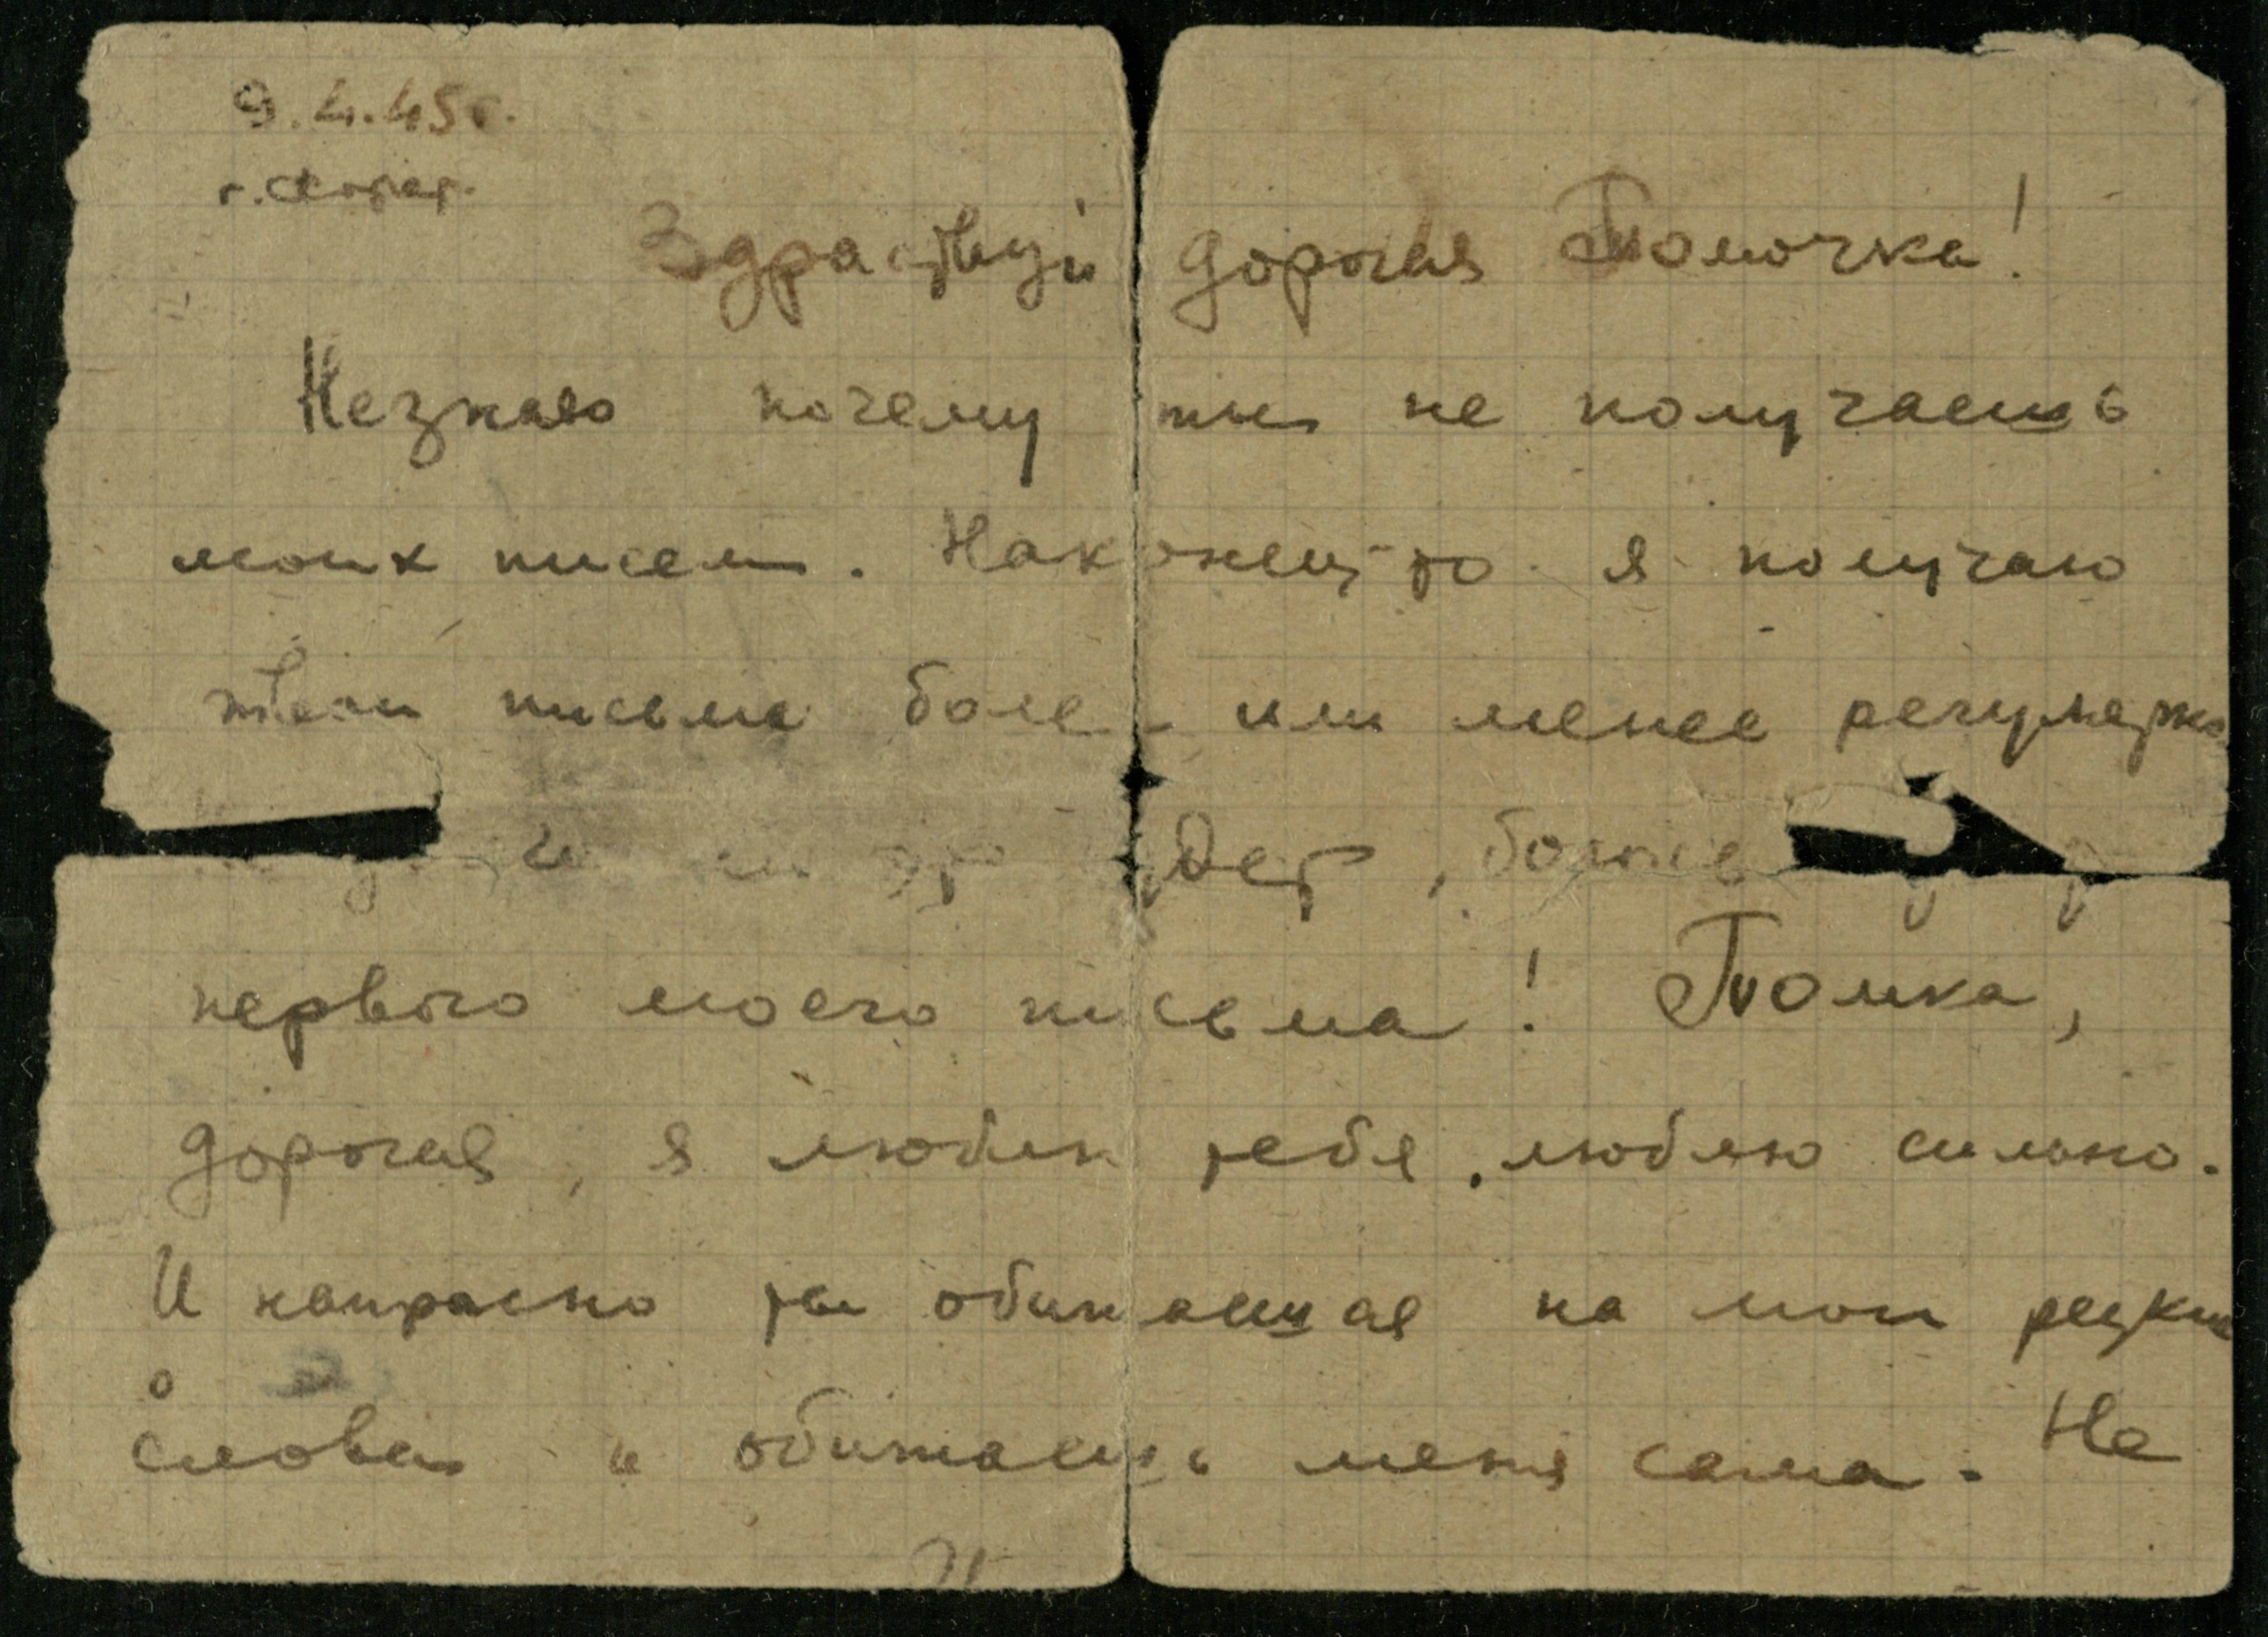 9.4.45г.
Здраствуй дорогая Томочка!
Незнаю почему ты не получаешь
моих писем. Наконец то я получаю
твои письма боле - или менее регулярно
первого моего письма! Томка,
дорогая, я люблю тебя, люблю сильно.
И напрасно ты обижаешся на мои резкие
слова и обижаешь меня сама. Не